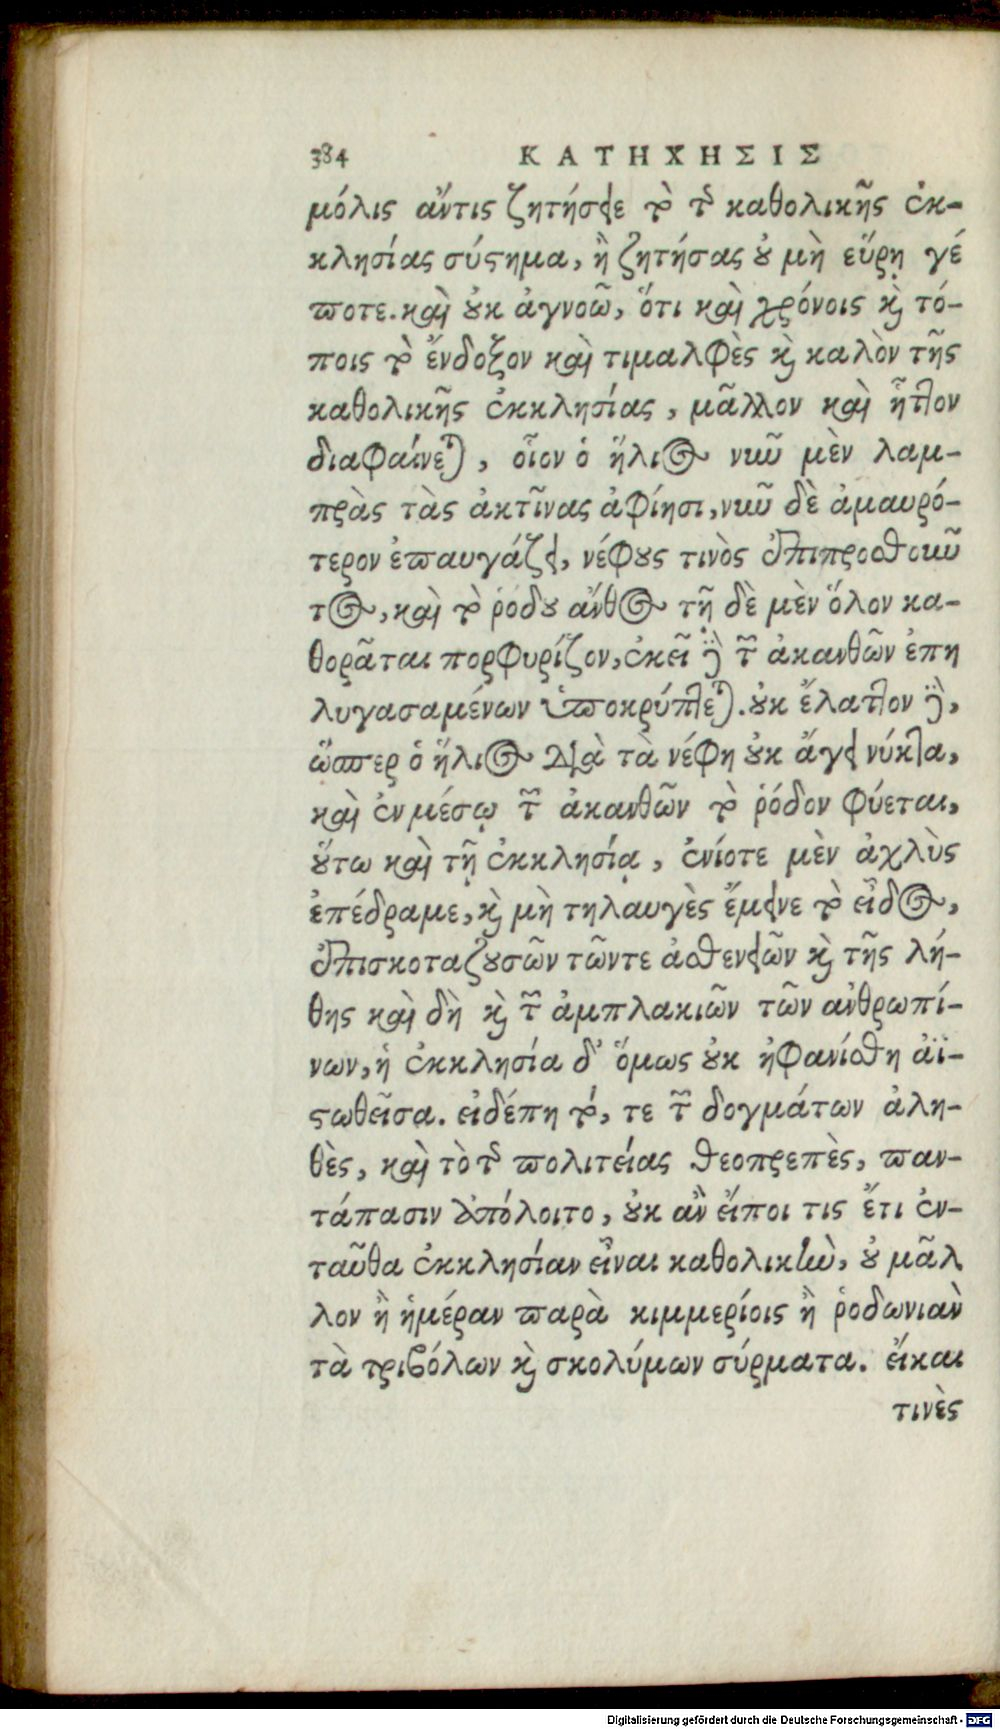 384 ΚΑΤΗΧΗΣΙΣ
μόλις ἄντις ζητήσειε τὸ τῆς καθολικῆς ἐκ-
κλησίας σύστημα, ἢ ζητήσας οὐ μὴ εὕρῃ γέ
ποτε. καὶ οὐκ ἀγνοῶ, ὅτι καὶ χρόνοις καὶ τό-
ποις τὸ ἔνδοξον καὶ τιμαλφὲς καὶ καλὸν τῆς
καθολικῆς ἐκκλησίας, μᾶλλον καὶ ἧττον
διαφαίνεται, οἷον ὁ ἥλιος νῦν μὲν λαμ-
πρὰς τὰς ἀκτῖνας ἀφίησι, νῦν δὲ ἀμαυρό-
τερον ἐπαυγάζει, νέφους τινὸς ἐπιπροσθοῦν
τος, καὶ τὸ ῥόδου ἄνθος τῇ δὲ μὲν ὅλον κα-
θορᾶται πορφυρίζον, ἐκεῖ δὲ τῶν ἀκανθῶν ἐπη
λυγασαμένων ὑποκρύπτεται. οὐκ ἔλαττον δὲ,
ὥσπερ ὁ ἥλιος διὰ τὰ νέφη οὐκ ἄγει νύκτα,
καὶ ἐν μέσῳ τῶν ἀκανθῶν τὸ ῥόδον φύεται,
οὕτω καὶ τῇ ἐκκλησίᾳ, ἐνίοτε μὲν ἀχλὺς
ἐπέδραμε, καὶ μὴ τηλαυγὲς ἔμεινε τὸ εἶδος,
ἐπισκοταζουσῶν τῶντε ἀσθενειῶν καὶ τῆς λή-
θης καὶ δὴ καὶ τῶν ἀμπλακιῶν τῶν ἀνθρωπί-
νων, ἡ ἐκκλησία δ' ὅμως οὐκ ἠφανίσθη ἀϊ-
στωθεῖσα. εἰδέπη τό, τε τῶν δογμάτων ἀλη-
θὲς, καὶ τὸ τῆς πολιτείας θεοπρεπὲς, παν-
τάπασιν ἀπόλοιτο, οὐκ ἂν εἴποι τις ἔτι ἐν-
ταῦθα ἐκκλησίαν εἶναι καθολικὴν, οὐ μᾶλ
λον ἢ ἡμέραν παρὰ κιμμερίοις ἢ ῥοδωνιὰν
τὰ τριβόλων καὶ σκολύμων σύρματα. εἴκαι
τινὲς
Digitalisierung gefördert durch die Deutsche Forschungsgemeinschaft - DFG